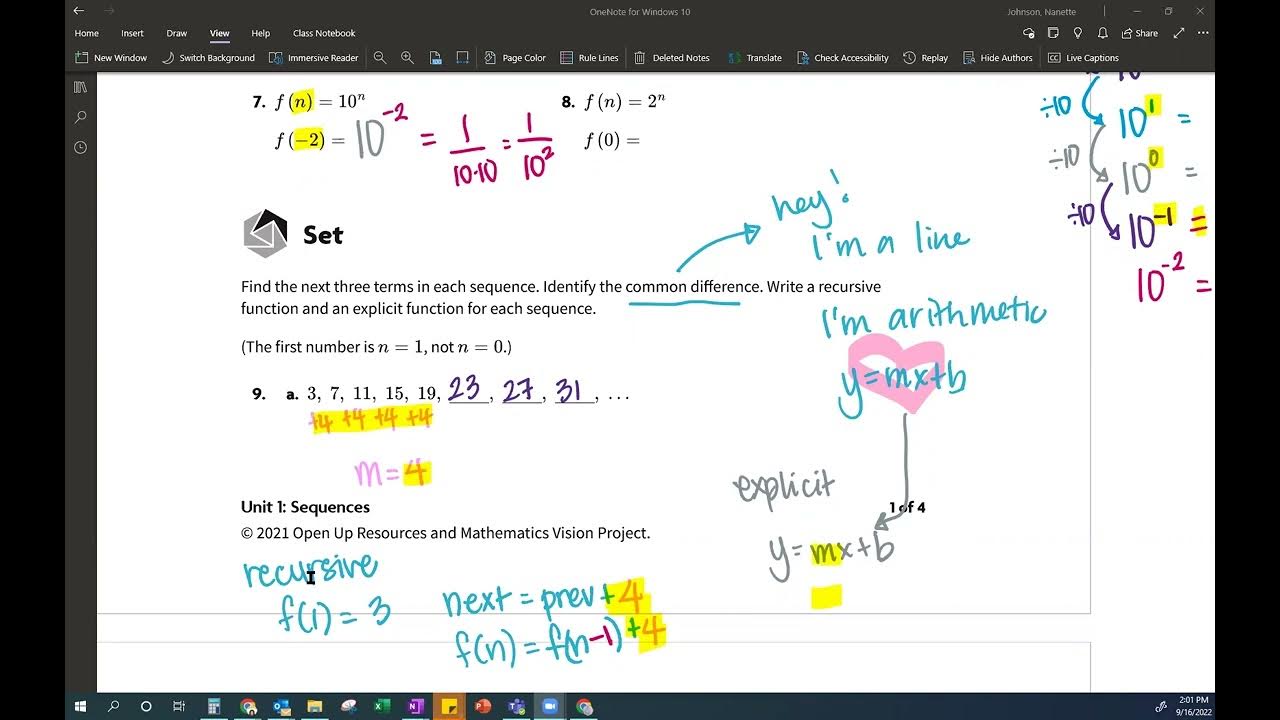 OneNote for Windows 10
Johnson, Nanette
Home Insert Draw View Help Class Notebook
Share
New Window Switch Background Immersive Reader Page Color Rule Lines Deleted Notes Translate Check Accessibility Replay Hide Authors Live Captions
7. f(n) = 10ⁿ
8. f(n) = 2ⁿ
f(−2) = 10⁻² = 1/10·10 = 1/10²
f(0) =
÷10
10¹ =
÷10
10⁰ =
÷10
10⁻¹ =
10⁻² =
Set
hey!
I'm a line
Find the next three terms in each sequence. Identify the common difference. Write a recursive
function and an explicit function for each sequence.
I'm arithmetic
(The first number is n = 1, not n = 0.)
y=mx+b
9. a. 3, 7, 11, 15, 19, 23, 27, 31, ...
+4 +4 +4 +4
m = 4
explicit
Unit 1: Sequences
1 of 4
© 2021 Open Up Resources and Mathematics Vision Project.
y=mx+b
recursive
f(1) = 3
next = prev + 4
f(n) = f(n-1) + 4
2:01 PM
9/16/2022